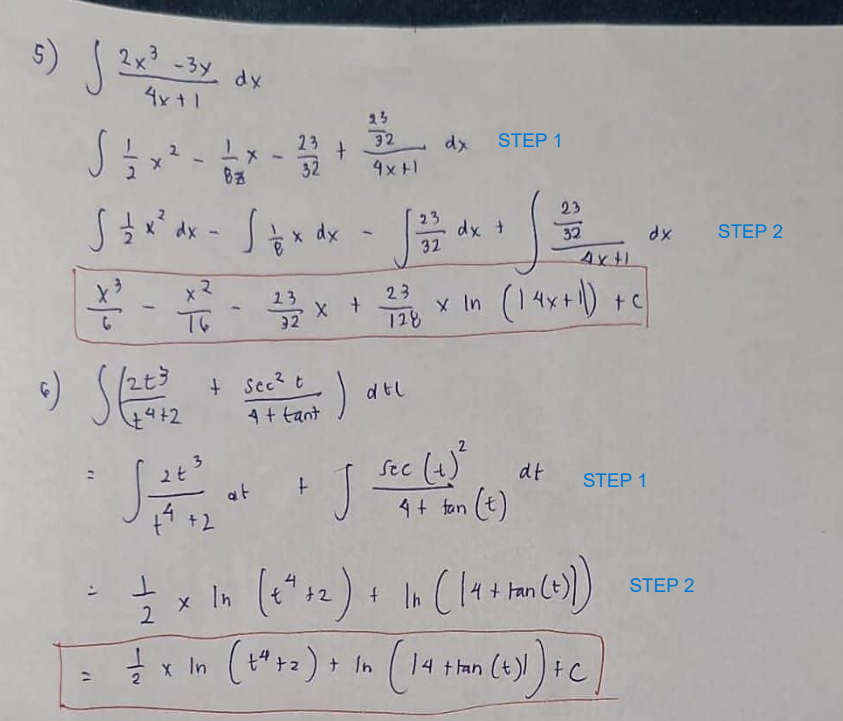 5) ∫ (2x³ - 3y)/(4x+1) dx
∫ 1/2 x² - 1/8 x - 23/32 + (23/32)/(4x+1) dx STEP 1
∫ 1/2 x² dx - ∫ 1/8 x dx - ∫ 23/32 dx + ∫ (23/32)/(4x+1) dx STEP 2
x³/6 - x²/16 - 23/32 x + 23/128 x ln (|4x+1|) + c
6) ∫ (2t³/(t⁴+2) + sec² t/(4 + tant)) dt
= ∫ 2t³/(t⁴+2) dt + ∫ sec (t)²/(4 + tan (t)) dt STEP 1
= 1/2 x ln (t⁴+2) + ln (|4 + tan(t)|) STEP 2
= 1/2 x ln (t⁴+2) + ln (|4 + tan (t)|) + c